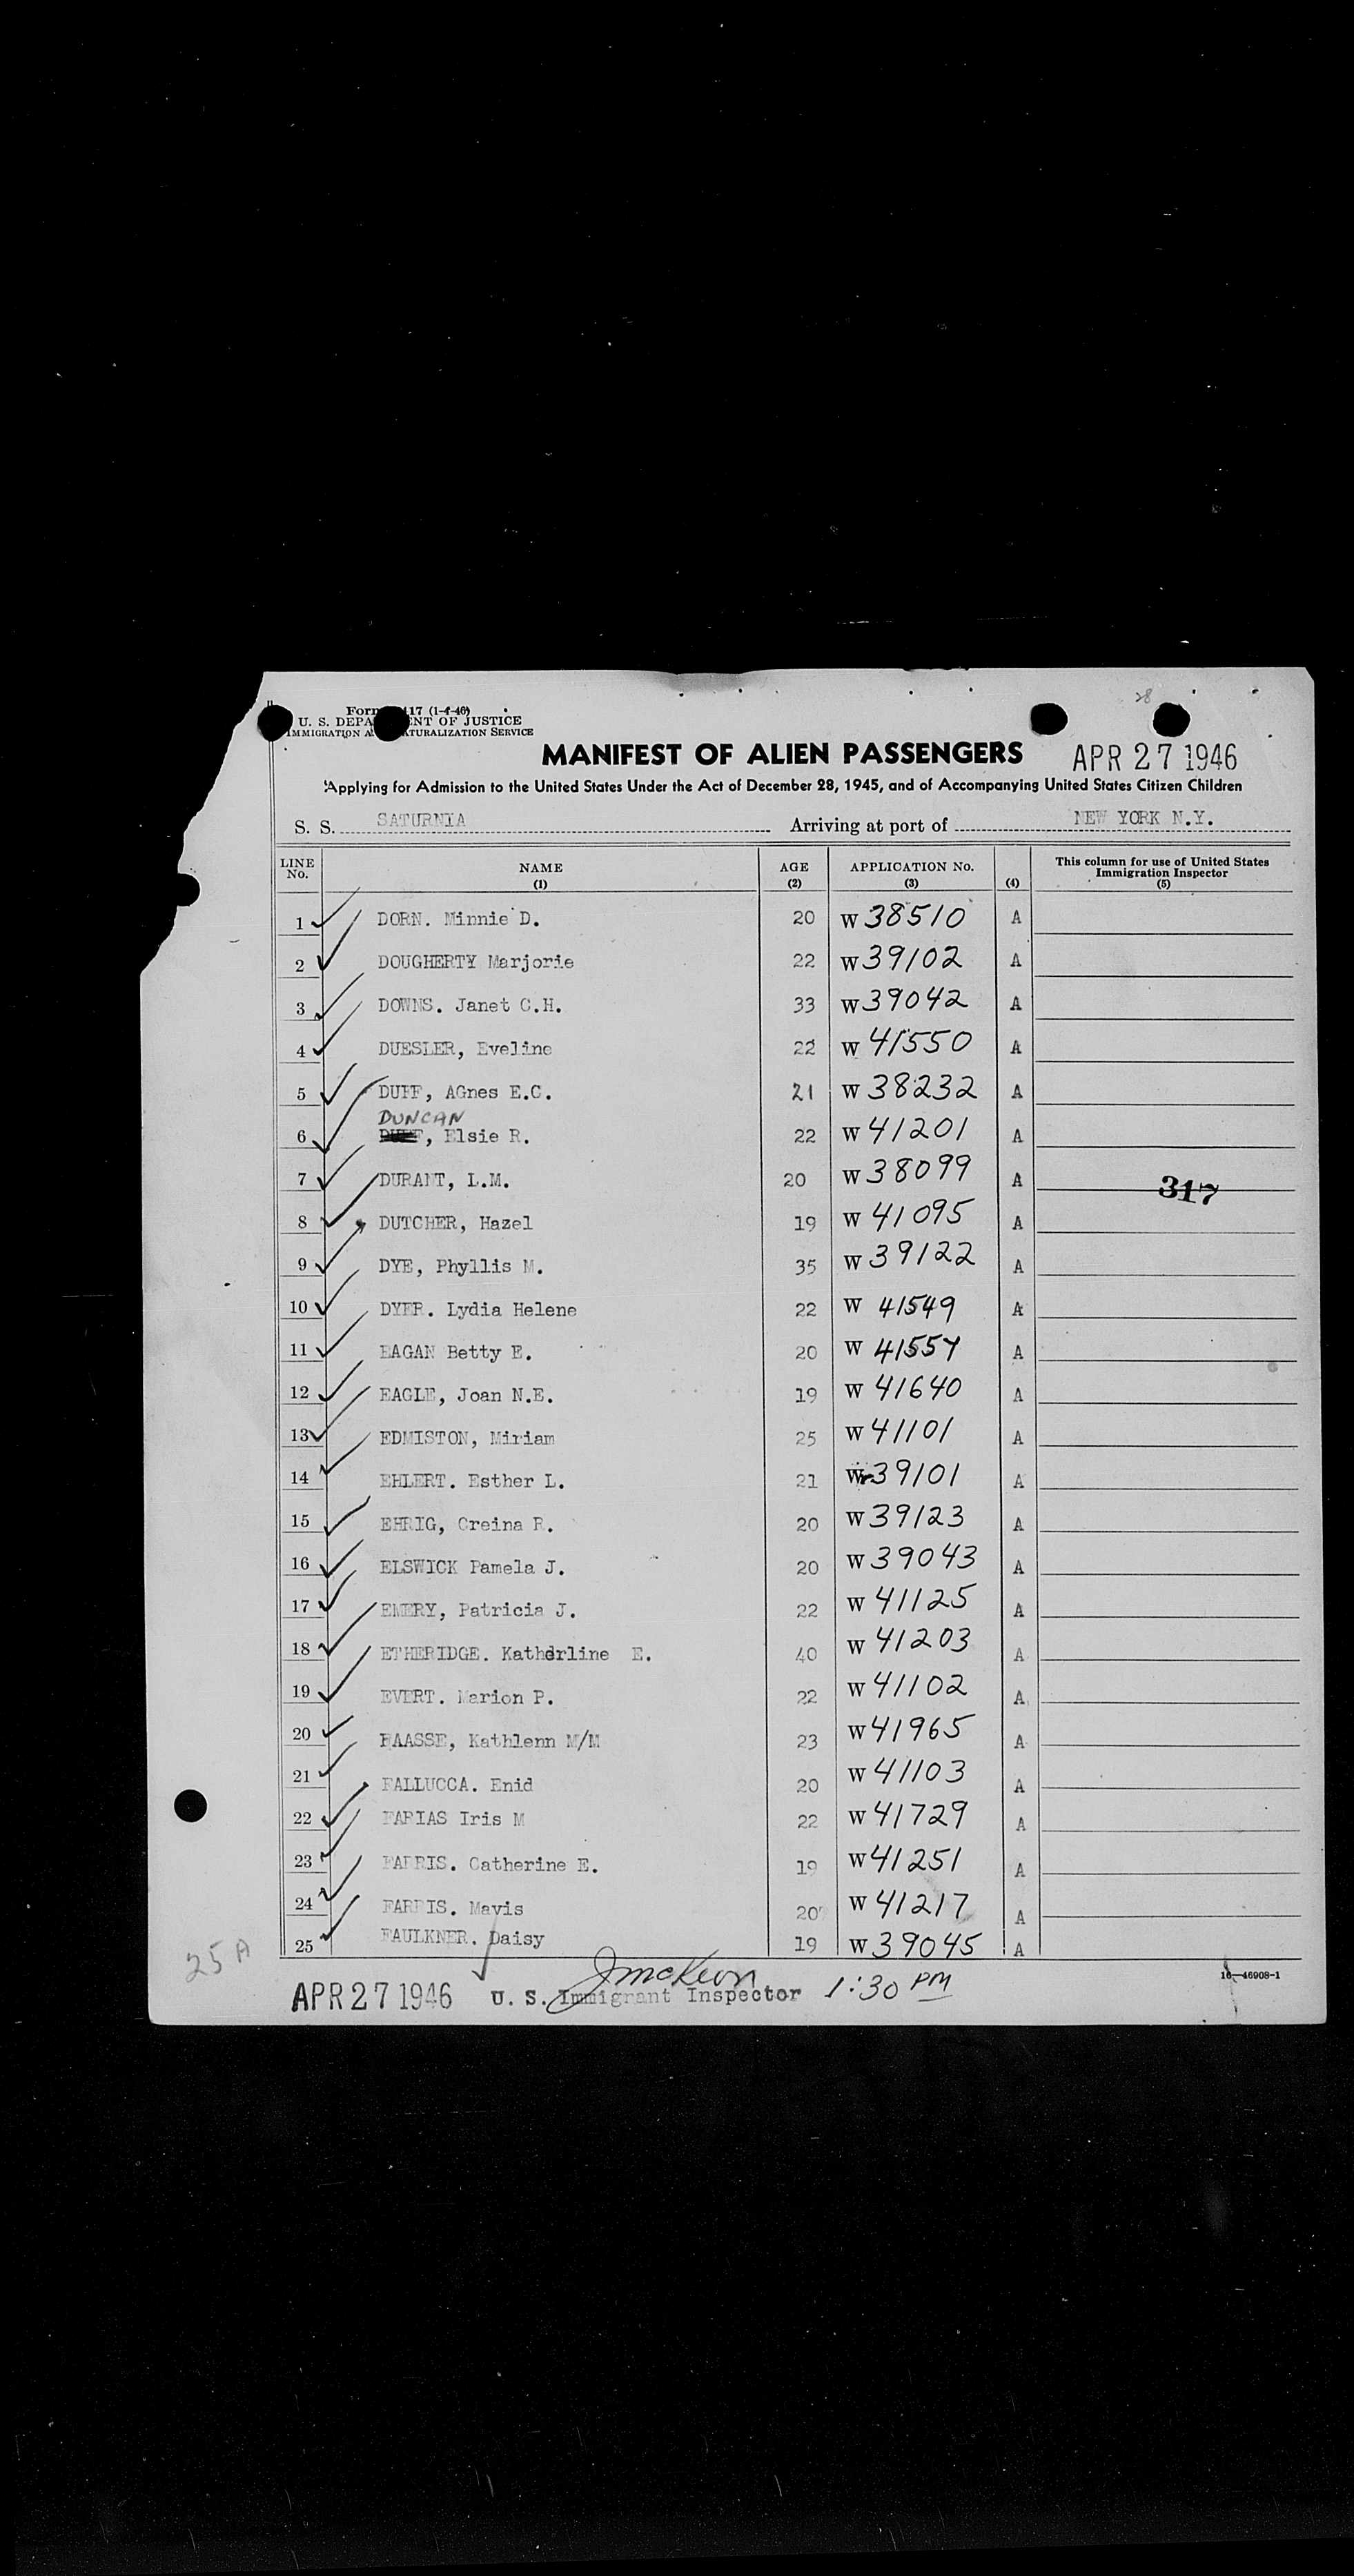 28
Form 417 (1-4-46)
U. S. DEPA ENT OF JUSTICE
IMMIGRATION A TURALIZATION SERVICE
MANIFEST OF ALIEN PASSENGERS APR 27 1946
Applying for Admission to the United States Under the Act of December 28, 1945, and of Accompanying United States Citizen Children
S. S. SATURNIA Arriving at port of NEW YORK N.Y.
LINE No. NAME (1) AGE (2) APPLICATION No. (3) (4) This column for use of United States Immigration Inspector (5)
1 DORN. Minnie D. 20 W 38510 A
2 DOUGHERTY Marjorie 22 W 39102 A
3 DOWNS. Janet C.H. 33 W 39042 A
4 DUESLER, Eveline 22 W 41550 A
5 DUFF, AGnes E.C. 21 W 38232 A
DUNCAN
6 DUFF, Elsie R. 22 W 41201 A
7 DURANT, L.M. 20 W 38099 A 317
8 DUTCHER, Hazel 19 W 41095 A
9 DYE, Phyllis M. 35 W 39122 A
10 DYER. Lydia Helene 22 W 41549 A
11 EAGAN Betty E. 20 W 41557 A
12 EAGLE, Joan N.E. 19 W 41640 A
13 EDMISTON, Miriam 25 W 41101 A
14 EHLERT. Esther L. 21 W 39101 A
15 EHRIG, Creina R. 20 W 39123 A
16 ELSWICK Pamela J. 20 W 39043 A
17 EMERY, Patricia J. 22 W 41125 A
18 ETHERIDGE. Katherline E. 40 W 41203 A
19 EVERT. Marion P. 22 W 41102 A
20 FAASSE, Kathlenn M/M 23 W 41965 A
21 FALLUCCA. Enid 20 W 41103 A
22 FARIAS Iris M 22 W 41729 A
23 FARRIS. Catherine E. 19 W 41251 A
24 FARRIS. Mavis 20 W 41217 A
25 FAULKNER. Daisy 19 W 39045 A
25 A
16—46908-1
APR 27 1946 U. S. Immigrant Inspector JMcKeon 1:30 PM